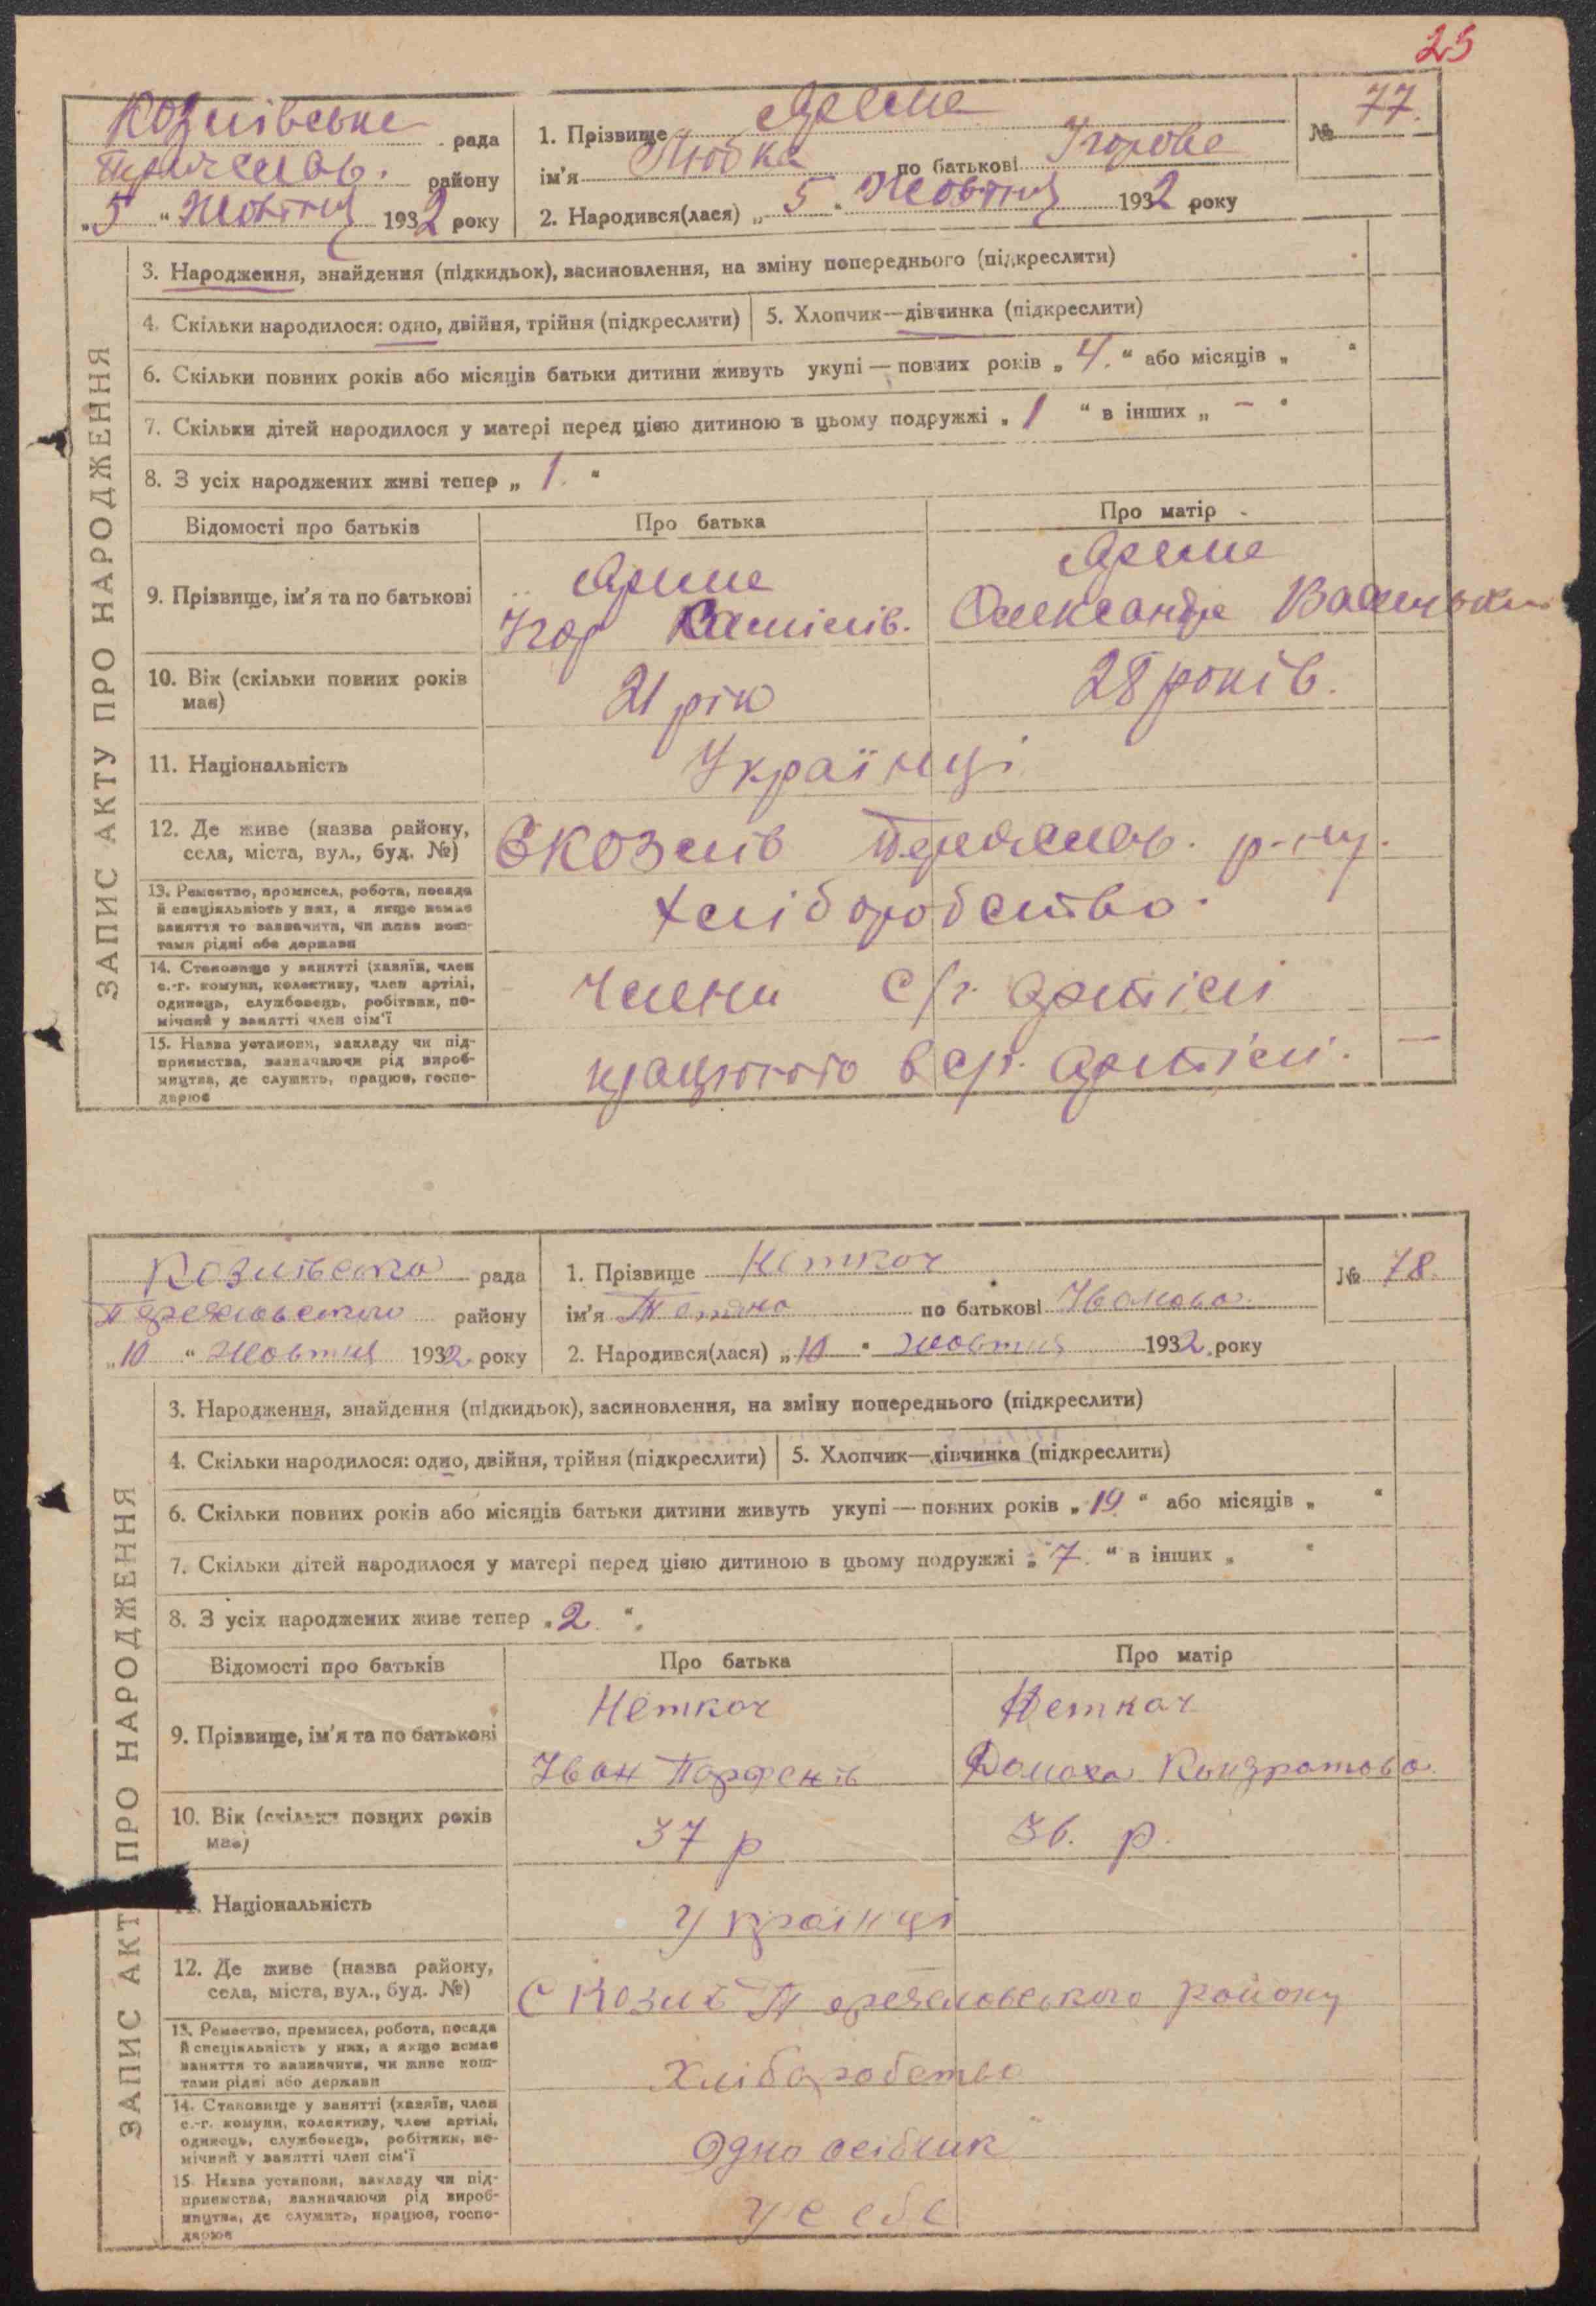 25
Козлівське рада
Переяслав. району
„5“ Жовтня 1932 року
1. Прізвище Ярема
ім'я Любка по батькові Ігорова
2. Народився(лася) „5“ Жовтня 1932 року
№ 77.
ЗАПИС АКТУ ПРО НАРОДЖЕННЯ
3. Народження, знайдення (підкидьок), засиновлення, на зміну попереднього (підкреслити)
4. Скільки народилося: одно, двійня, трійня (підкреслити)
5. Хлопчик—дівчинка (підкреслити)
6. Скільки повних років або місяців батьки дитини живуть укупі — повних років „4.“ або місяців „ “
7. Скільки дітей народилося у матері перед цією дитиною в цьому подружжі „1“ в інших „–“
8. З усіх народжених живі тепер „1.“
Відомості про батьків
Про батька
Про матір
9. Прізвище, ім'я та по батькові
Ярема
Ігор
Ярема
Олександра
10. Вік (скільки повних років
має)
21 рік
28 років.
11. Національність
Українці
12. Де живе (назва району,
села, міста, вул., буд. №)
С Козлів Переяслав. р-ну.
13. Ремество, промисел, робота, посада
й спеціяльність у них, а якщо немає
заняття то зазначити, чи живе кош-
тами рідні або держави
Хліборобство.
14. Становище у занятті (хазяїн, член
с.-г. комуни, колективу, член артілі,
одинець, службовець, робітник, по-
мічний у занятті член сім'ї
Члени с/г. артілі
15. Назва установи, закладу чи під-
приємства, зазначаючи рід вироб-
ництва, де служить, працює, госпо-
дарює
працюють в с/г. артілі. —
Козлівська рада
Переяславського району
„10“ Жовтня 1932 року
1. Прізвище Неткач
ім'я Тетяна по батькові Іванова.
2. Народився(лася) „10“ Жовтня 1932 року
№ 78.
ЗАПИС АКТ ПРО НАРОДЖЕННЯ
3. Народження, знайдення (підкидьок), засиновлення, на зміну попереднього (підкреслити)
4. Скільки народилося: одно, двійня, трійня (підкреслити)
5. Хлопчик—дівчинка (підкреслити)
6. Скільки повних років або місяців батьки дитини живуть укупі — повних років „19“ або місяців „ “
7. Скільки дітей народилося у матері перед цією дитиною в цьому подружжі „7.“ в інших „ “
8. З усіх народжених живе тепер „2.“
Відомості про батьків
Про батька
Про матір
9. Прізвище, ім'я та по батькові
Неткач
Іван Парфенів
Неткач
Домаха Кондратова.
10. Вік (скільки повних років
має)
37 р
36. р.
Національність
Українці
12. Де живе (назва району,
села, міста, вул., буд. №)
С Козлів Переяславського району
13. Ремество, промисел, робота, посада
й спеціяльність у них, а якщо немає
заняття то зазначити, чи живе кош-
тами рідні або держави
Хліборобство
14. Становище у занятті (хазяїн, член
с.-г. комуни, колективу, член артілі,
одинець, службовець, робітник, по-
мічний у занятті член сім'ї
Одноосібник
15. Назва установи, закладу чи під-
приємства, зазначаючи рід вироб-
ництва, де служить, працює, госпо-
дарює
у себе